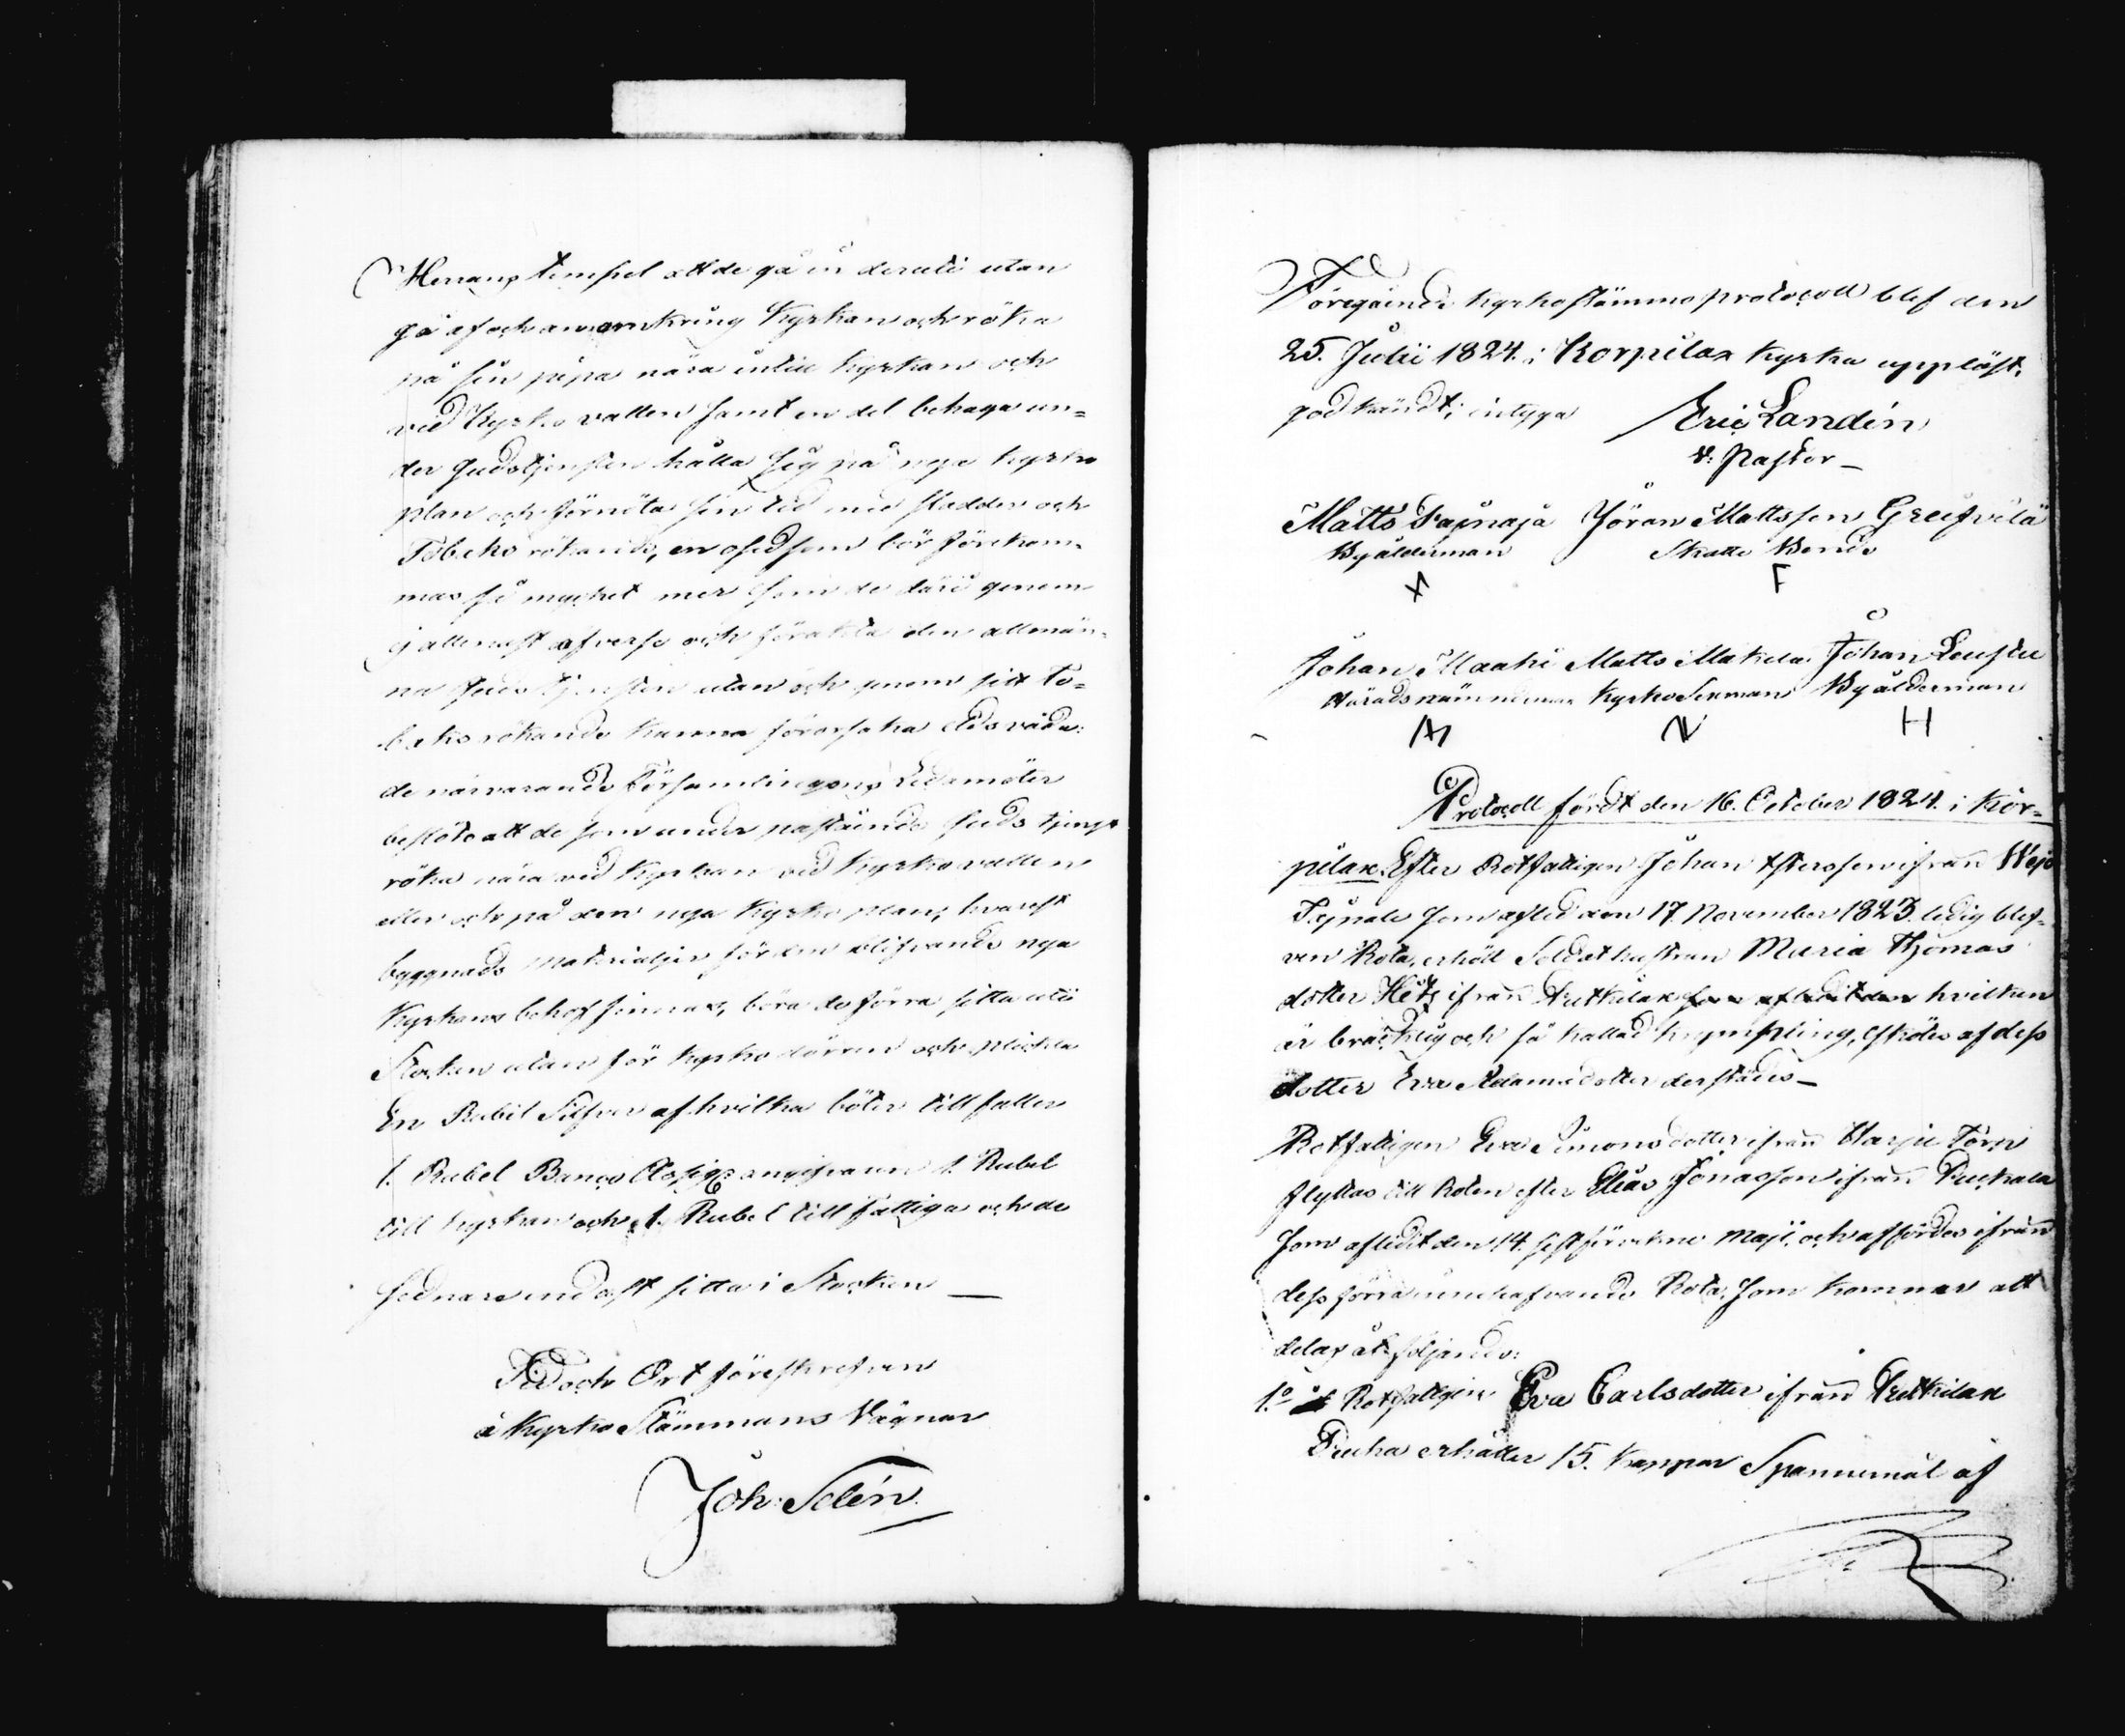 Herrans tempel att de gå in deruti utan
gå af och an omkring Kyrkan och röka
på sin pipa nära intill Kyrkan och
vid Kyrko vallen samt en del behaga un=
der Gudstjensten hålla sig på nya kyrko
plan och förnöta sin tid med sladder och
Tobaks rökande, en osed som bör förekom=
mas så mycket mer som de däri genom
ej allenast och förakta den allmän=
na Guds tjensten utan och genom sitt To=
baks rökande kunna förorsaka Elds våda:
de närvarande Församlingens Ledamöter
beslöto att de som under påstående Guds tjenst
röka nära vid Kyrkan vid Kyrko vallen
eller och på den nya Kyrko plan, hvarest
byggnads Materialier för den blifvande nya
Kyrkans behof finnas, böra de förra sitta uti
Stocken utan för kyrko dörren och plickta
En Rubel Silfver af hvilka böter till faller
1. Rubel Banco Assign: angifvaren 1. Rubel
till kyrkan och 1. Rubel till fattiga och de
sednare endast sitta i Stocken —
Tid och Ort föreskrefven
å Kyrko Stämmans Vägnar
Joh: Selén
Föregående Kyrkostämmo protocoll blef den
25. Julii 1824. i Korpilax Kyrka uppläst,
godkändt; intyga Eric Landén
v: Pastor —
Matts Jöran Mattsson
Byålderman Skatte Bonde
Johan Maaki Matts Makela Johan
Häradsnämndeman Kyrko Sexman Byålderman
H
Protocoll fördt den 16. October 1824. i Kor=
pilax. Efter Rotfattigen Johan ifrån
som afled den 17. November 1823. ledig blef=
ven Rota, erhöll Soldat hustrun Maria Thomas
dotter ifrån Putkilax som afledit den hvilken
är bräcklig och så kallad krympling, skötes af dess
dotter Eva Adamsdotter derstädes —
Rotfattigen Eva Simonsdotter ifrån
flyttas till Roten efter Elias Jonasson ifrån
som afledit den 14. sistförvekne Maji, och afföres ifrån
dess förra innehafvande Rota, som kommer att
delas åt följande:
1:o åt Rotfattigen Eva Carlsdotter ifrån Putkilax
erhåller 15. Kappar Spannemål af